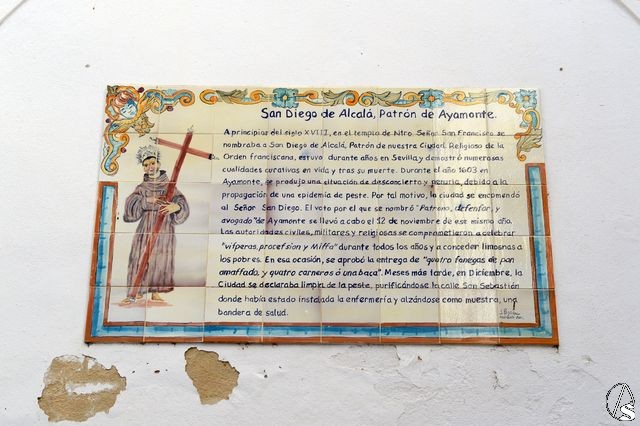 San Diego de Alcalá, Patrón de Ayamonte.
A principios del siglo XVIII, en el templo de Ntro. Señor San Francisco se
nombraba a San Diego de Alcalá, Patrón de nuestra Ciudad. Religioso de la
Orden franciscana, estuvo durante años en Sevilla y demostró numerosas
cualidades curativas en vida y tras su muerte. Durante el año 1603 en
Ayamonte, se produjo una situación de desconcierto y penuria, debido a la
propagación de una epidemia de peste. Por tal motivo, la ciudad se encomendó
al Señor San Diego. El voto por el que se nombró "Patrono, defensor, y
avogado" de Ayamonte se llevó a cabo el 12 de noviembre de ese mismo año.
Las autoridades civiles, militares y religiosas se comprometieron a celebrar
"vísperas, procession y Missa" durante todos los años y a conceder limosnas a
los pobres. En esa ocasión, se aprobó la entrega de "quatro fanegas de pan
amassado, y quatro carneros ó una baca". Meses más tarde, en Diciembre, la
Ciudad se declaraba limpia de la peste, purificándose la calle San Sebastián
donde había estado instalada la enfermería y alzándose como muestra, una
bandera de salud.